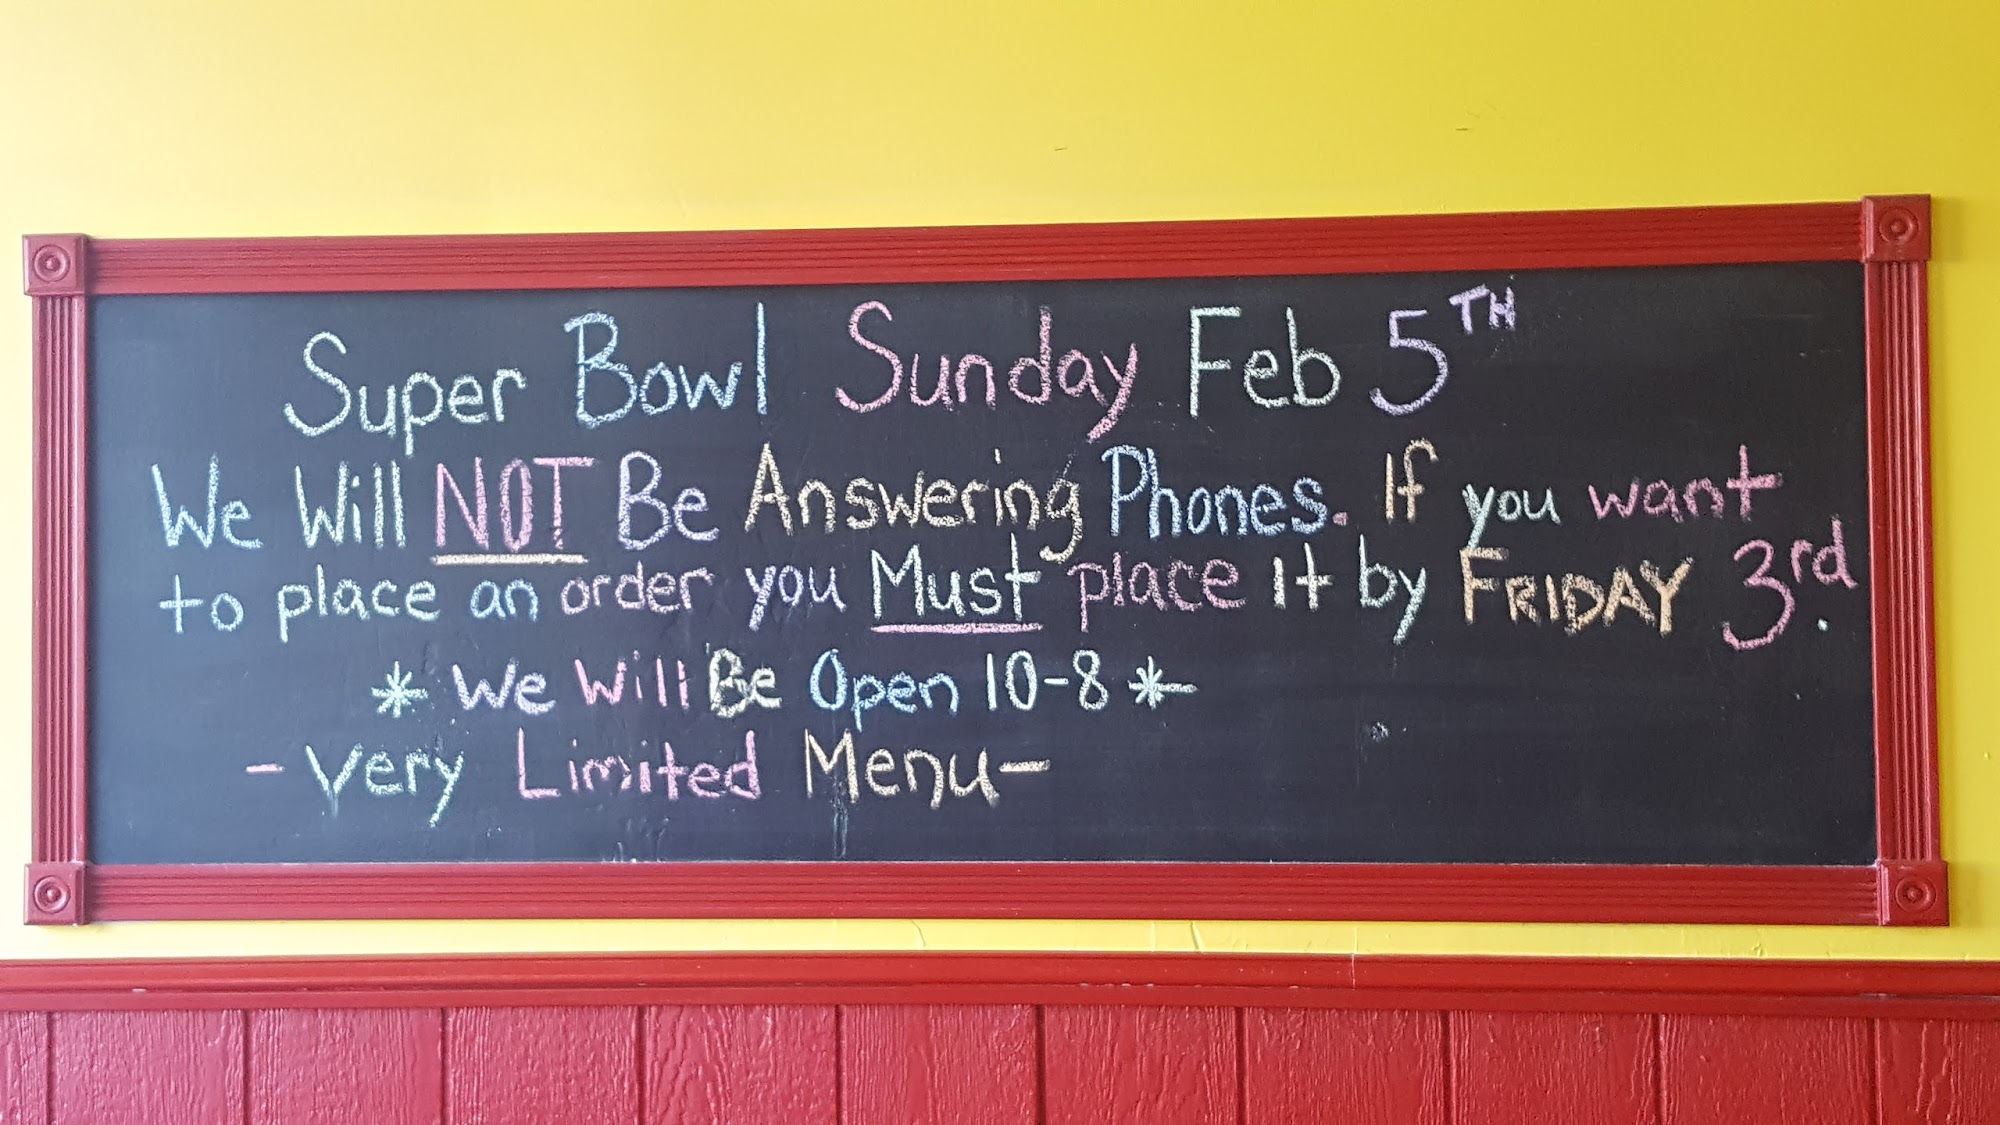 Super Bowl Sunday Feb 5TH
We Will NOT Be Answering Phones. If you want
to place an order you Must place it by FRIDAY 3rd.
* We Will Be Open 10-8 *
- Very Limited Menu -